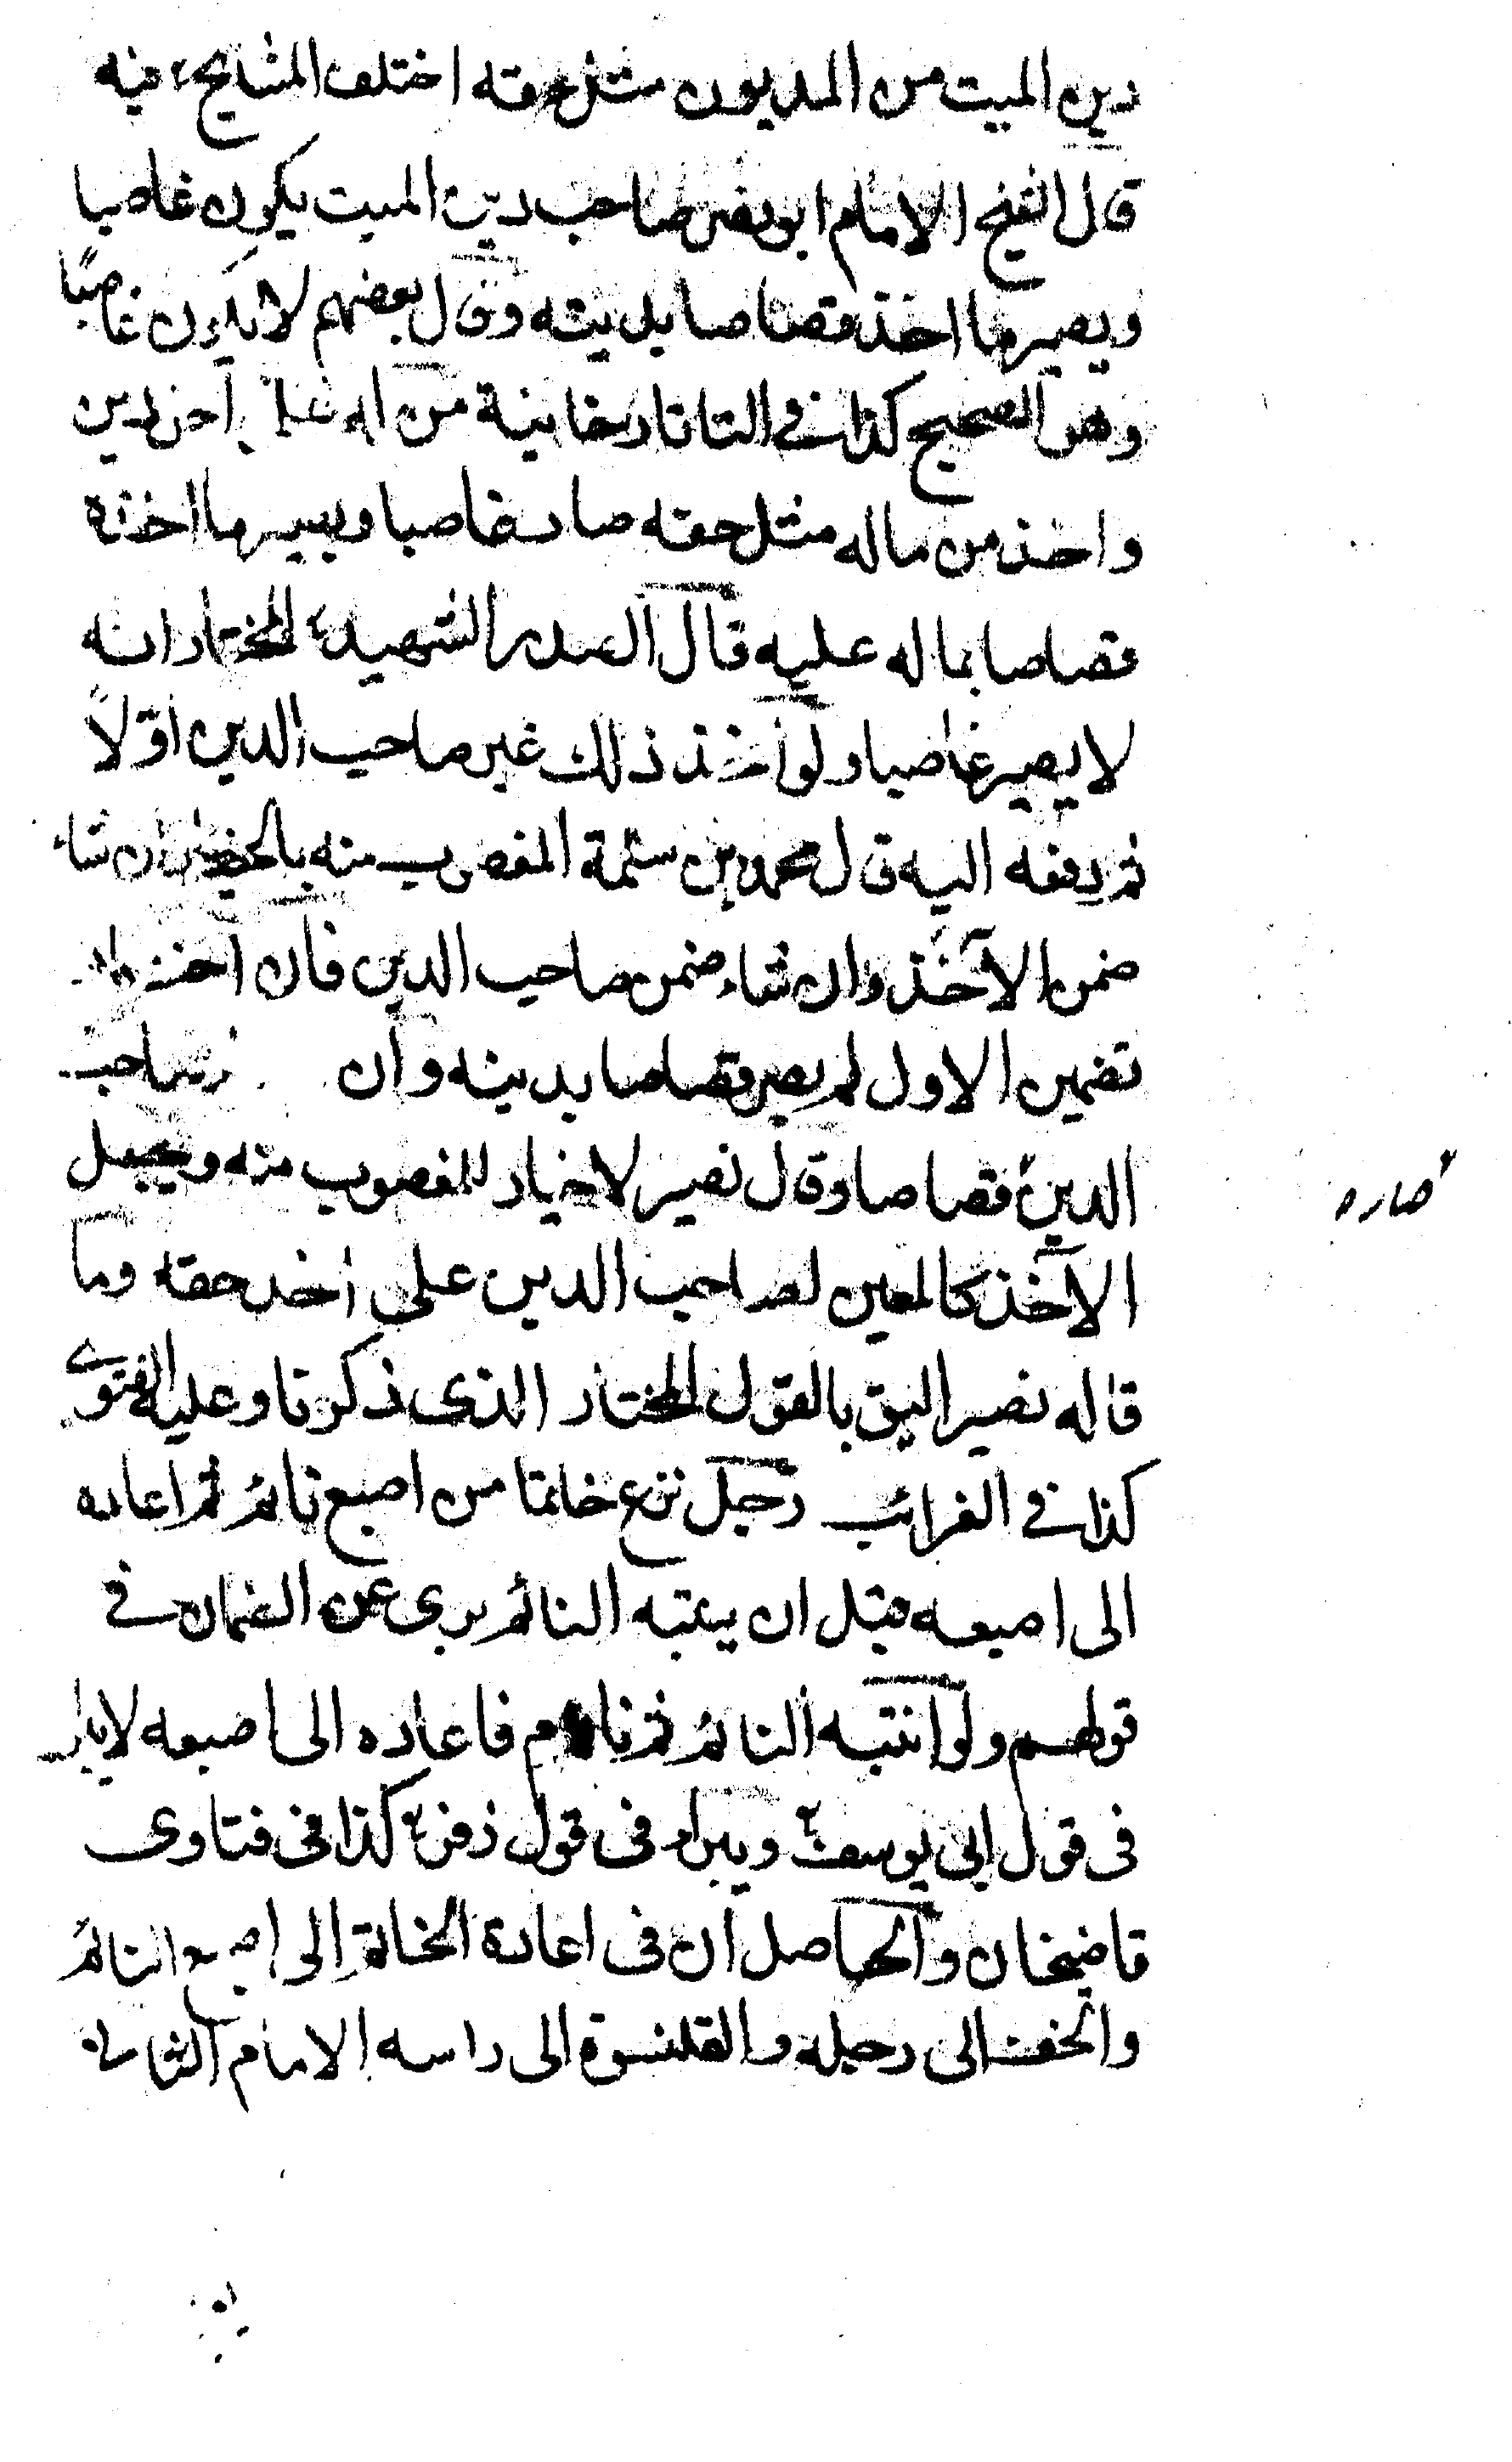 دين الميت من المديون مثل حقه اختلف المشايخ فيه
قال الشيخ الامام ابو نصر صاحب دين الميت يكون غاصبا
ويصير ما اخذ قصاصا بدينه وقال بعضهم لا يكون غاصبًا
وهو الصحيح كذا في التاتارخانية من له على آخر دين
واخذ من ماله مثل حقه صار غاصبا ويصير ما اخذه
قصاصا بما له عليه قال الصدر الشهيد المختار انه
لا يصير غاصبا ولو اخذ ذلك غير صاحب الدين اوّلاً
ثم دفعه اليه قال محمد بن سلمة المغصوب منه بالخيار ان شاء
ضمن الآخذ وان شاء ضمن صاحب الدين فان اختار
تضمين الاول لم يصر قصاصا بدينه وان صاحب
الدين قصاصا وقال نصير لا خيار للمغصوب منه ويجعل
صاره
الآخذ كالمعين لصاحب الدين على اخذ حقه وما
قاله نصير اليق بالقول المختار الذى ذكرنا وعليه الفتوى
كذا في الغرائب رجل نزع خاتما من اصبع نائم ثم اعاده
الى اصبعه قبل ان ينتبه النائم برى عن الضمان في
قولهم ولو انتبه النائم ثم نام فاعاده الى اصبعه لا يبرا
فى قول ابى يوسف ويبرا فى قول زفر كذا فى فتاوى
قاضيخان والحاصل ان فى اعادة الخاتم الى اصبع النائم
والخف الى رجله والقلنسوة الى راسه الامام الثانى